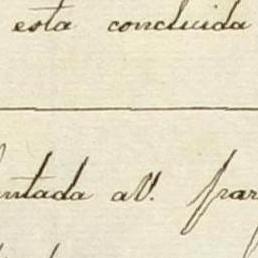 esta concluida
ntada a V. par